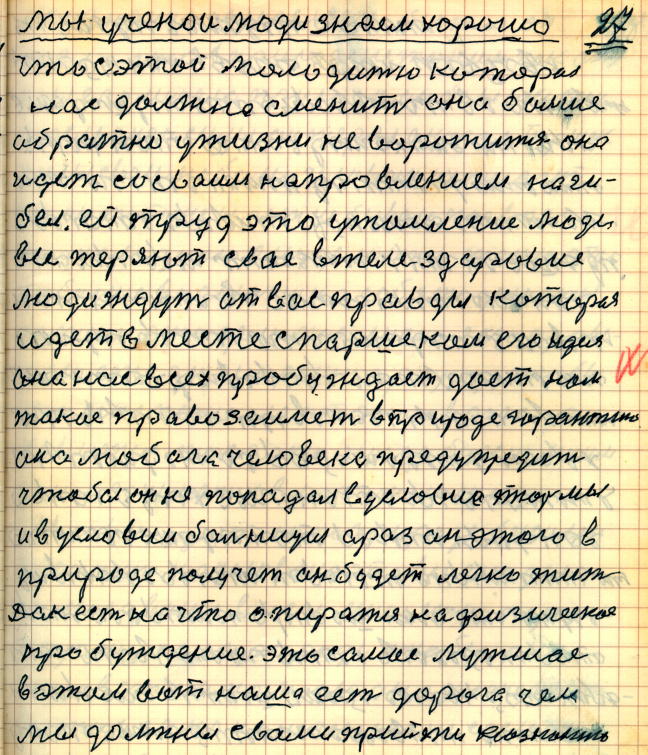 мы ученои люди знаем хорошо 27
что с этой молодижю которая
нас должна сменит она болше
обратно ужизни не воротитя она
идет со своим направлением наги-
бел. ей труд это утомление люди
все теряют свае в теле здаровие
люди ждут от вас правды которая
идет в месте спаршеком его идея
она нас всех пробуждает дает нам
такое право заимет в природе горантию
она любога человека предупредит
чтобы он не попадал в условиа тюрмы
и в условии балницы араз он этого в
природе получет он будет легко жит
Вок ест на что опиратя на физическое
пробуждение. это самое лутшае
в этом вот наша ест дорога чем
мы должны свами прийти кпознонию